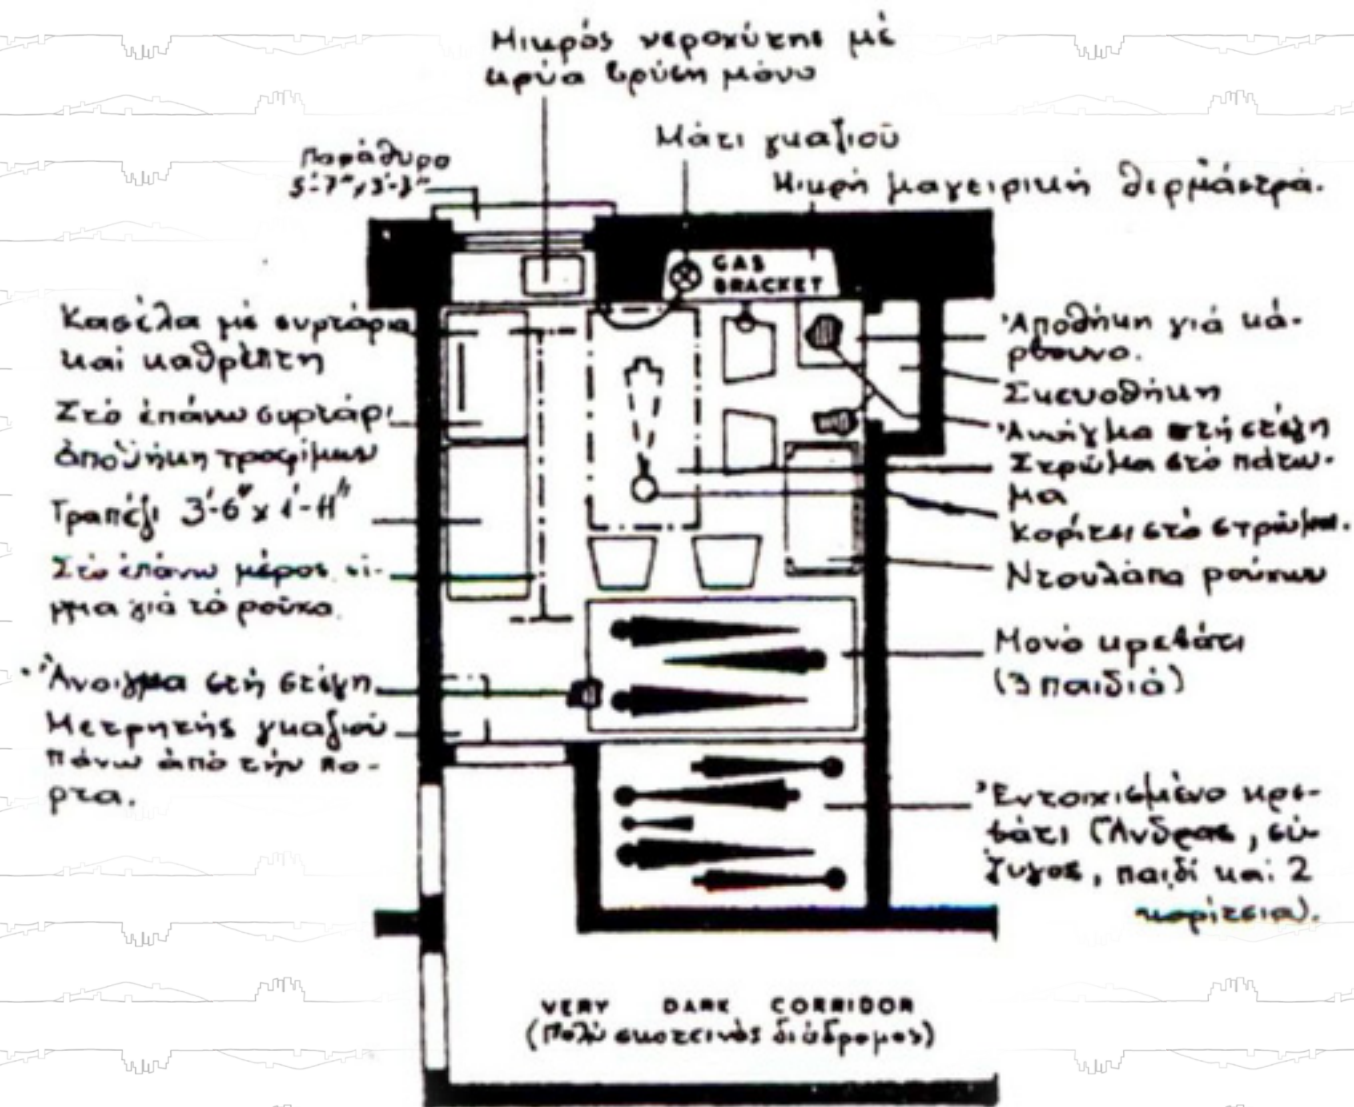 Μικρός νεροχύτης μέ
κρύα βρύση μόνο
Παράθυρο
5'-7"x3'-3"
Μάτι γκαζιού
Μικρή μαγειρική θερμάστρα.
GAS
BRACKET
Κασέλα μέ συρτάρια
καί καθρέπτη
Στό ἐπάνω συρτάρι
ἀποθήκη τροφίμων
Τραπέζι 3'-6" x 1'-11"
Στό ἐπάνω μέρος
γιά τό ρούχο.
Ἄνοιγμα στή στέγη
Μετρητής γκαζιού
πάνω ἀπό τήν πό-
ρτα.
Ἀποθήκη γιά κά-
ρβουνο.
Σκευοθήκη
Ἄνοιγμα στή στέγη
Στρώμα στό πάτω-
μα
Κορίτσι στό στρώμα.
Ντουλάπα ρούχων
Μονό κρεβάτι
(3 παιδιά)
Ἐντοιχισμένο κρε-
βάτι (Ἄνδρας, σύ-
ζυγος, παιδί καί 2
κορίτσια).
VERY DARK CORRIDOR
(Πολύ σκοτεινός διάδρομος)